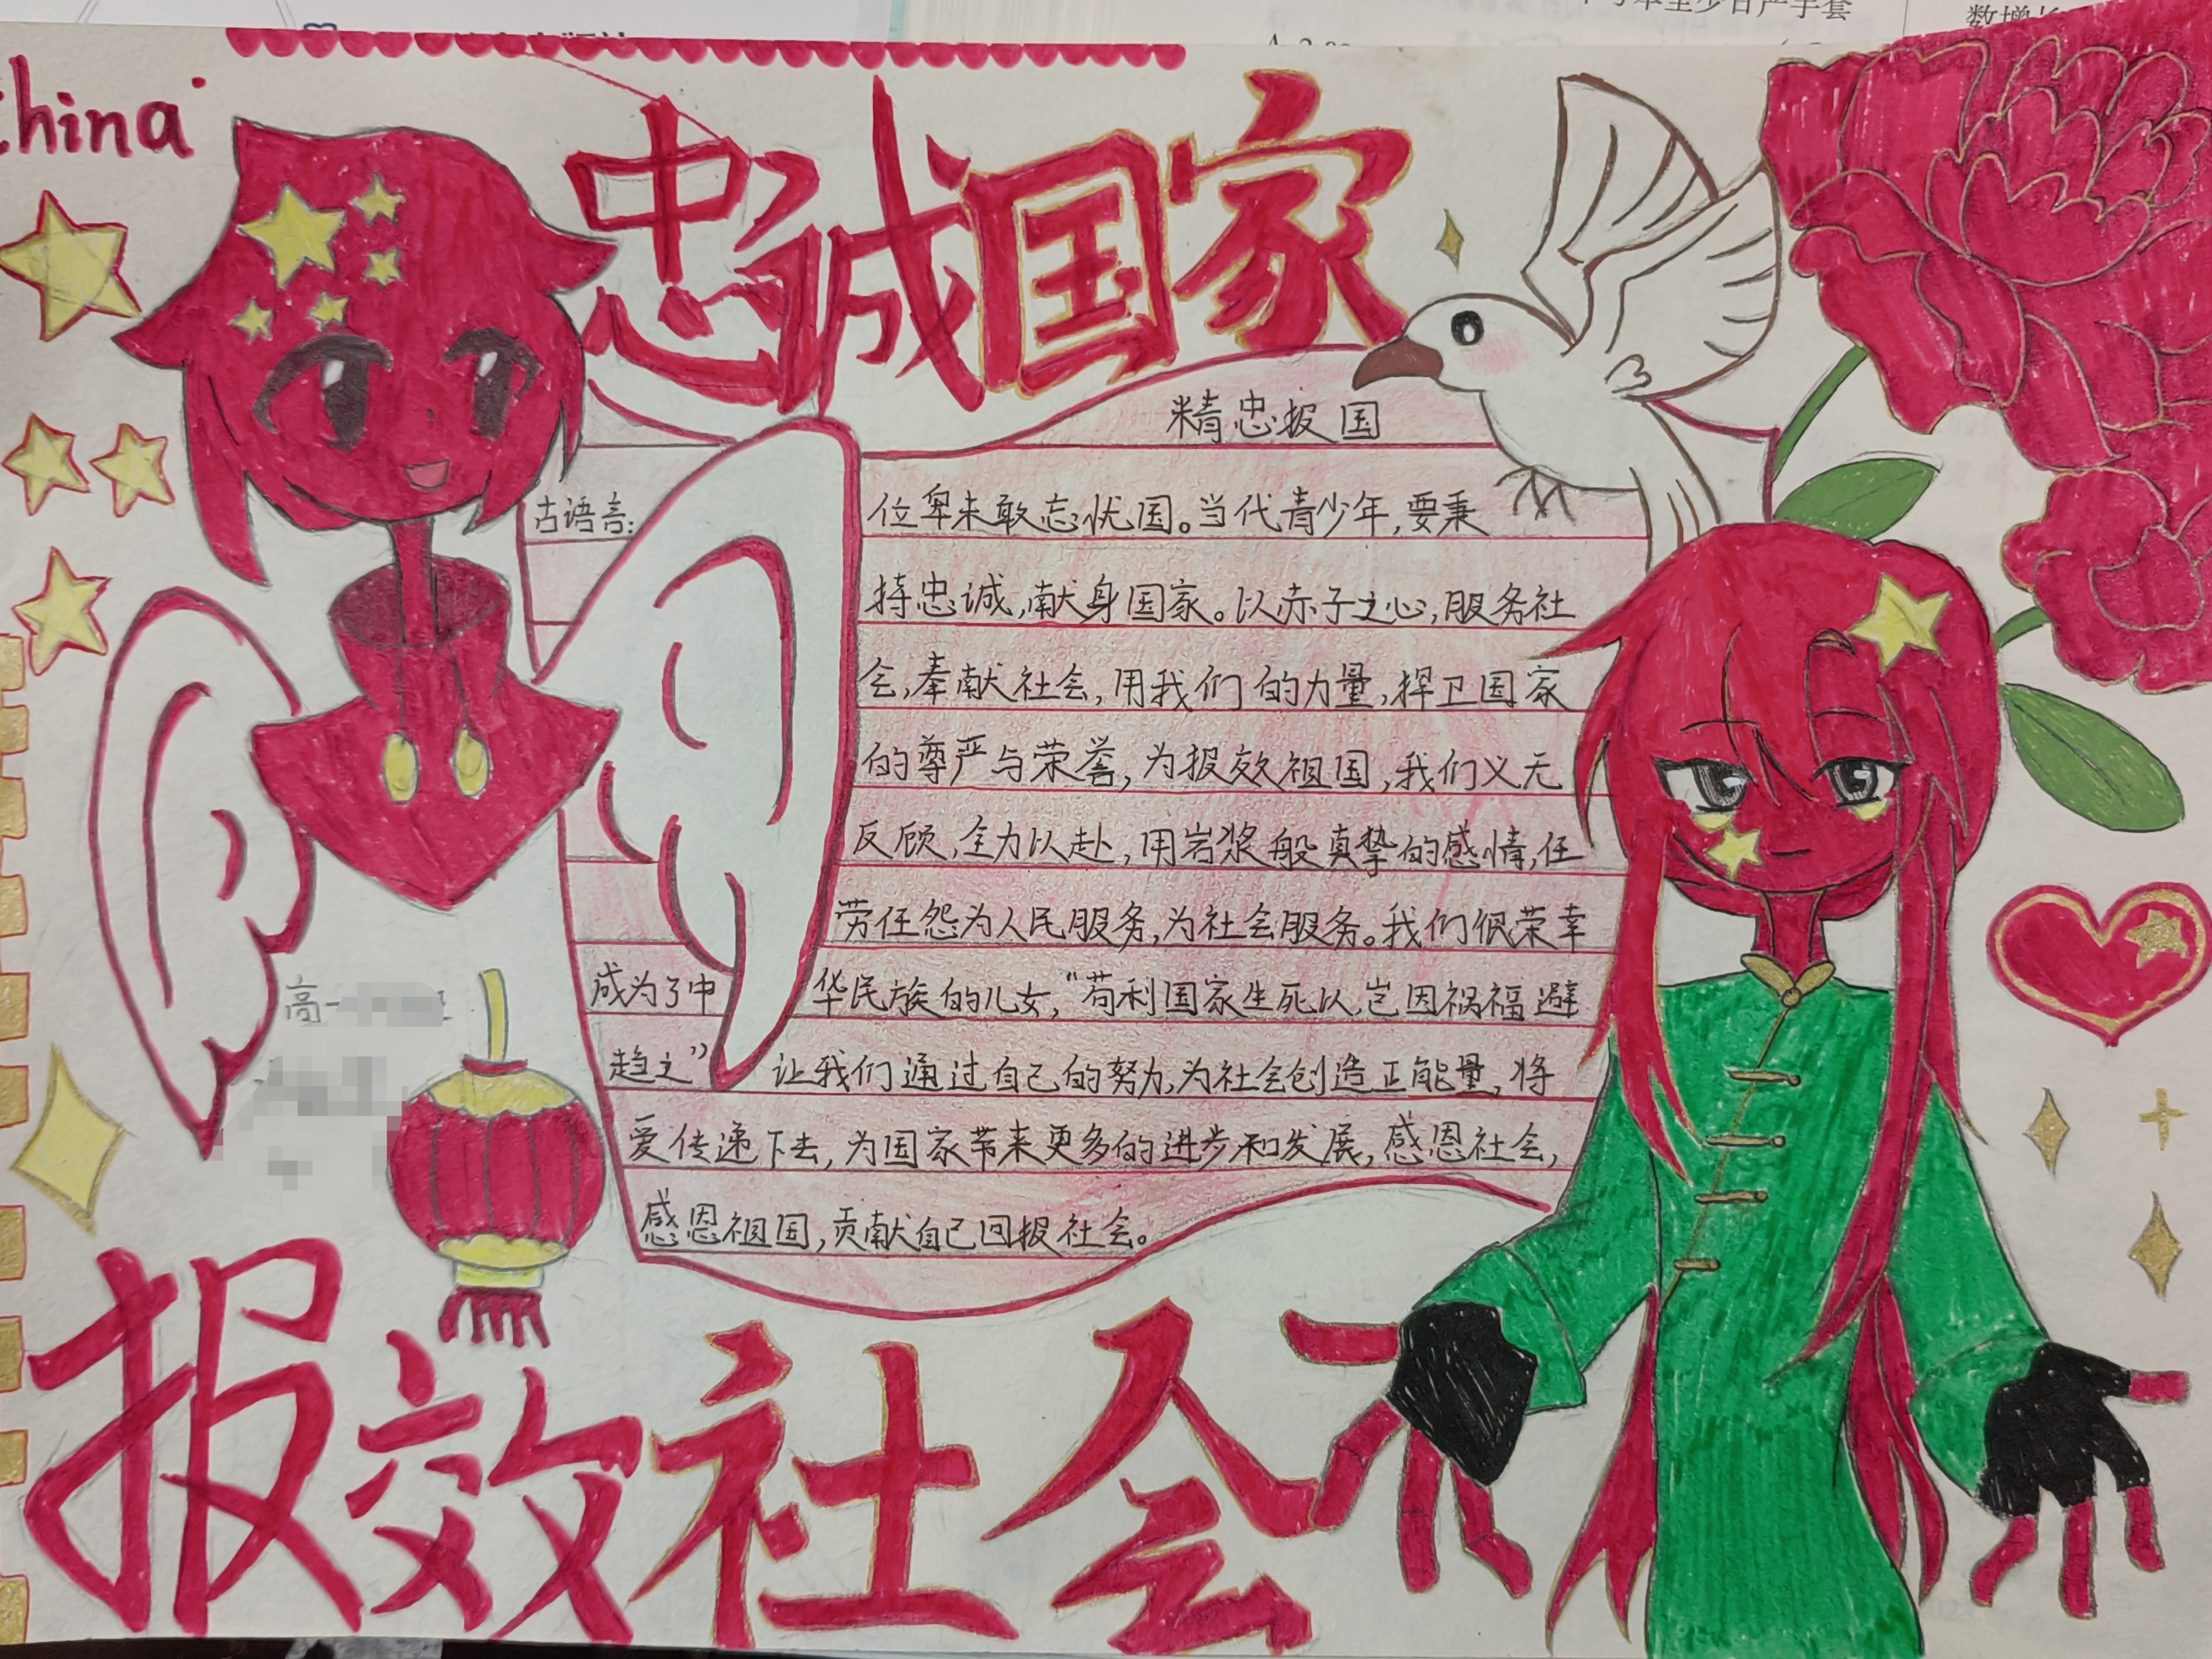 China
忠诚国家
精忠报国
古语言:位卑未敢忘忧国。当代青少年,要秉
持忠诚,献身国家。以赤子之心,服务社
会,奉献社会,用我们的力量,捍卫国家
的尊严与荣誉,为报效祖国,我们义无
反顾,全力以赴,用岩浆般真挚的感情,任
劳任怨为人民服务,为社会服务。我们很荣幸
成为了中华民族的儿女,“苟利国家生死以,岂因祸福避
趋之”让我们通过自己的努力,为社会创造正能量,将
爱传递下去,为国家带来更多的进步和发展,感恩社会,
感恩祖国,贡献自己回报社会。
高一
报效社会